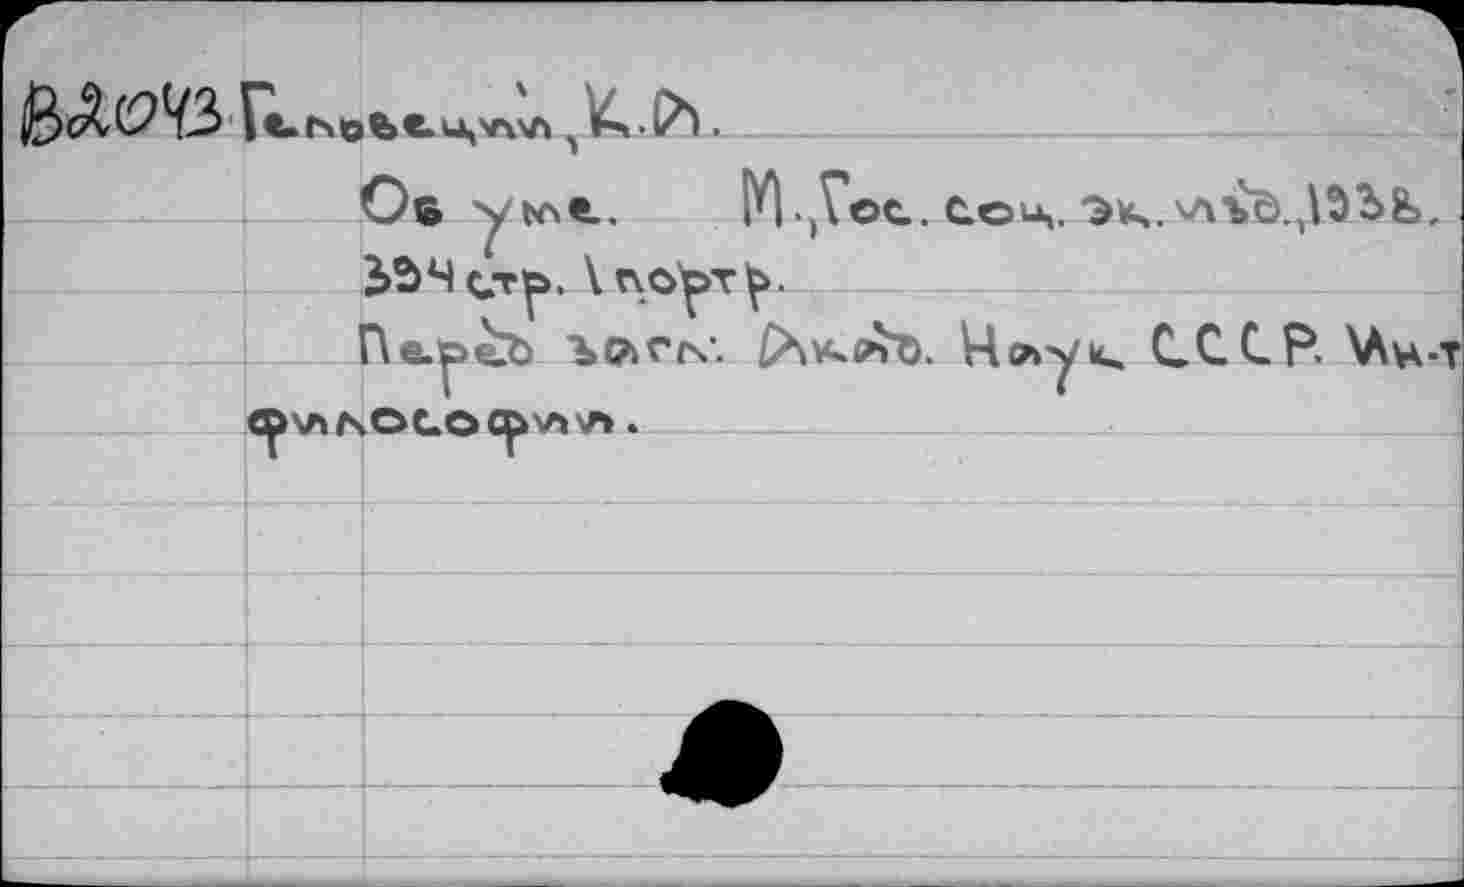 Гельвеций, К.А.
Об уме. М., Гос. соц. эк. изд., 1938.
394 стр. 1 портр.
Перед загл: Акад. Наук СССР. Ин-т
философии.